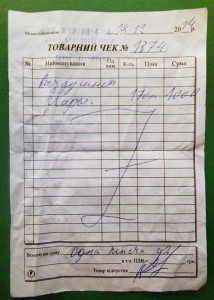 18.12 2014 р.
ТОВАРНИЙ ЧЕК № 1874
№ Найменування Од. вим. К-ть Ціна Сума
Воздушные
шары. 1000
Всього на суму Одна тисяча
в т.ч. ПДВ грн.
Товар відпустив